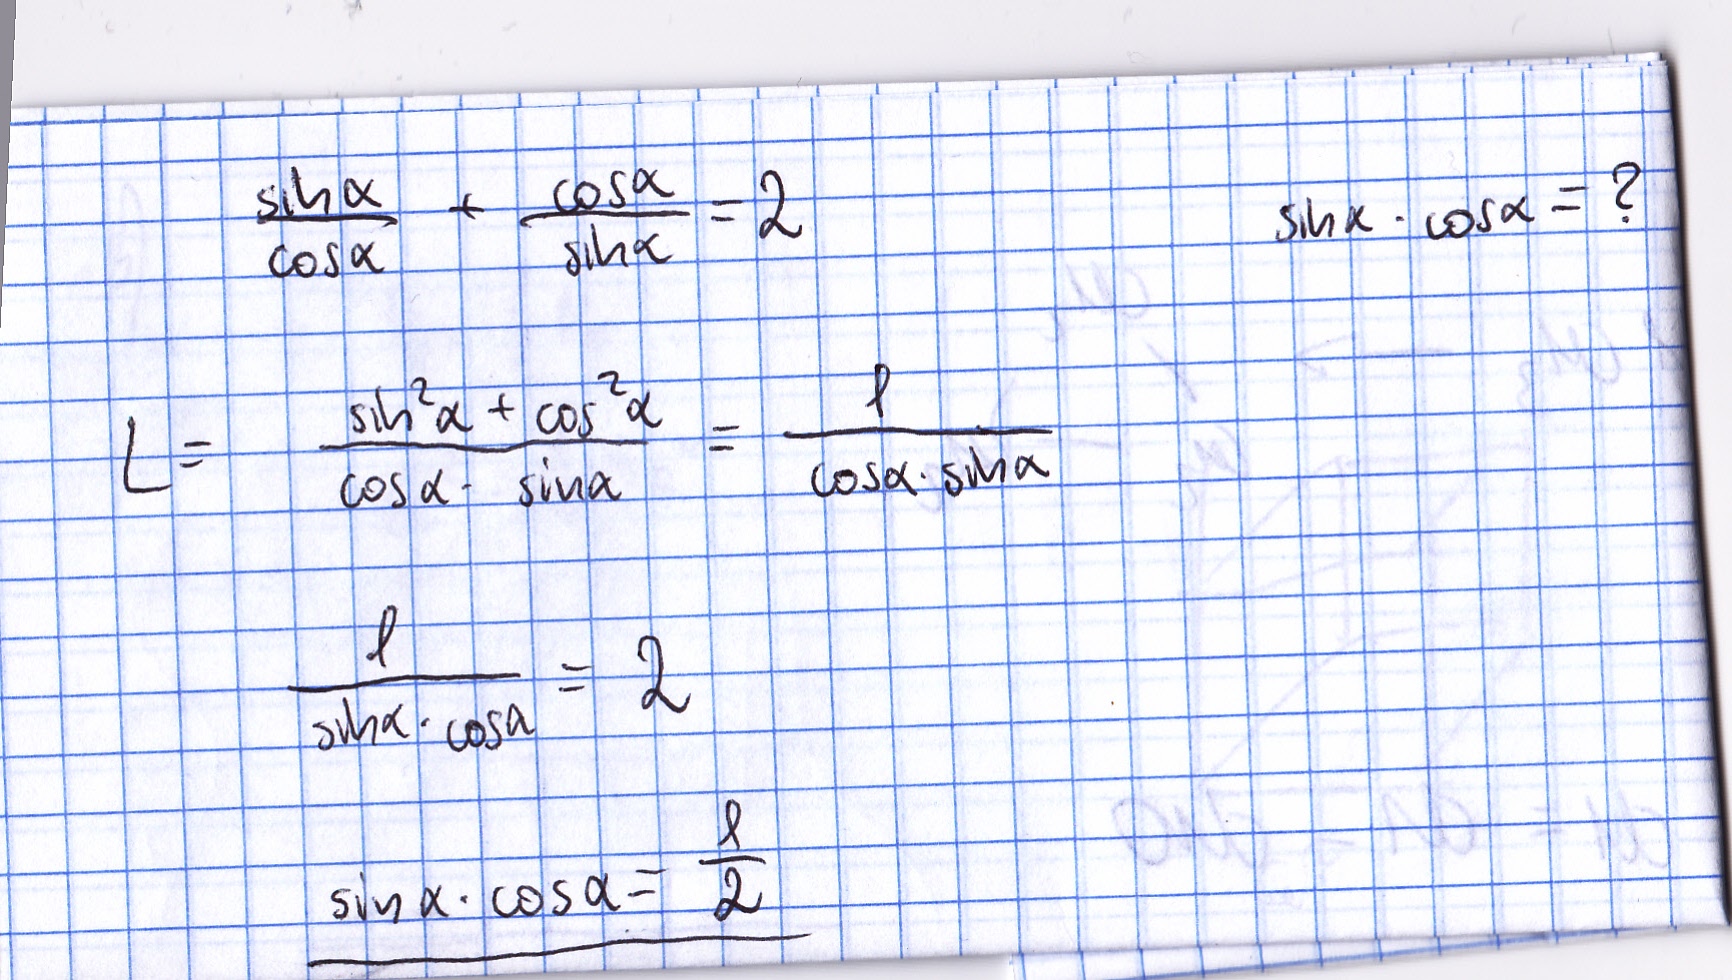 sinα/cosα + cosα/sinα = 2    sinα · cosα = ?
L = (sin²α + cos²α)/(cosα · sinα) = 1/(cosα · sinα)
1/(sinα · cosα) = 2
sinα · cosα = 1/2